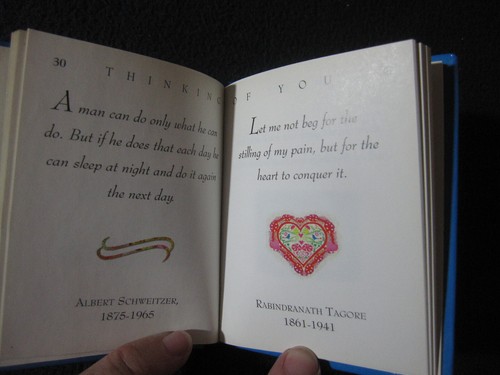 30
THINKING OF YOU
A man can do only what he can
do. But if he does that each day he
can sleep at night and do it again
the next day.
ALBERT SCHWEITZER,
1875-1965
Let me not beg for the
stilling of my pain, but for the
heart to conquer it.
RABINDRANATH TAGORE
1861-1941